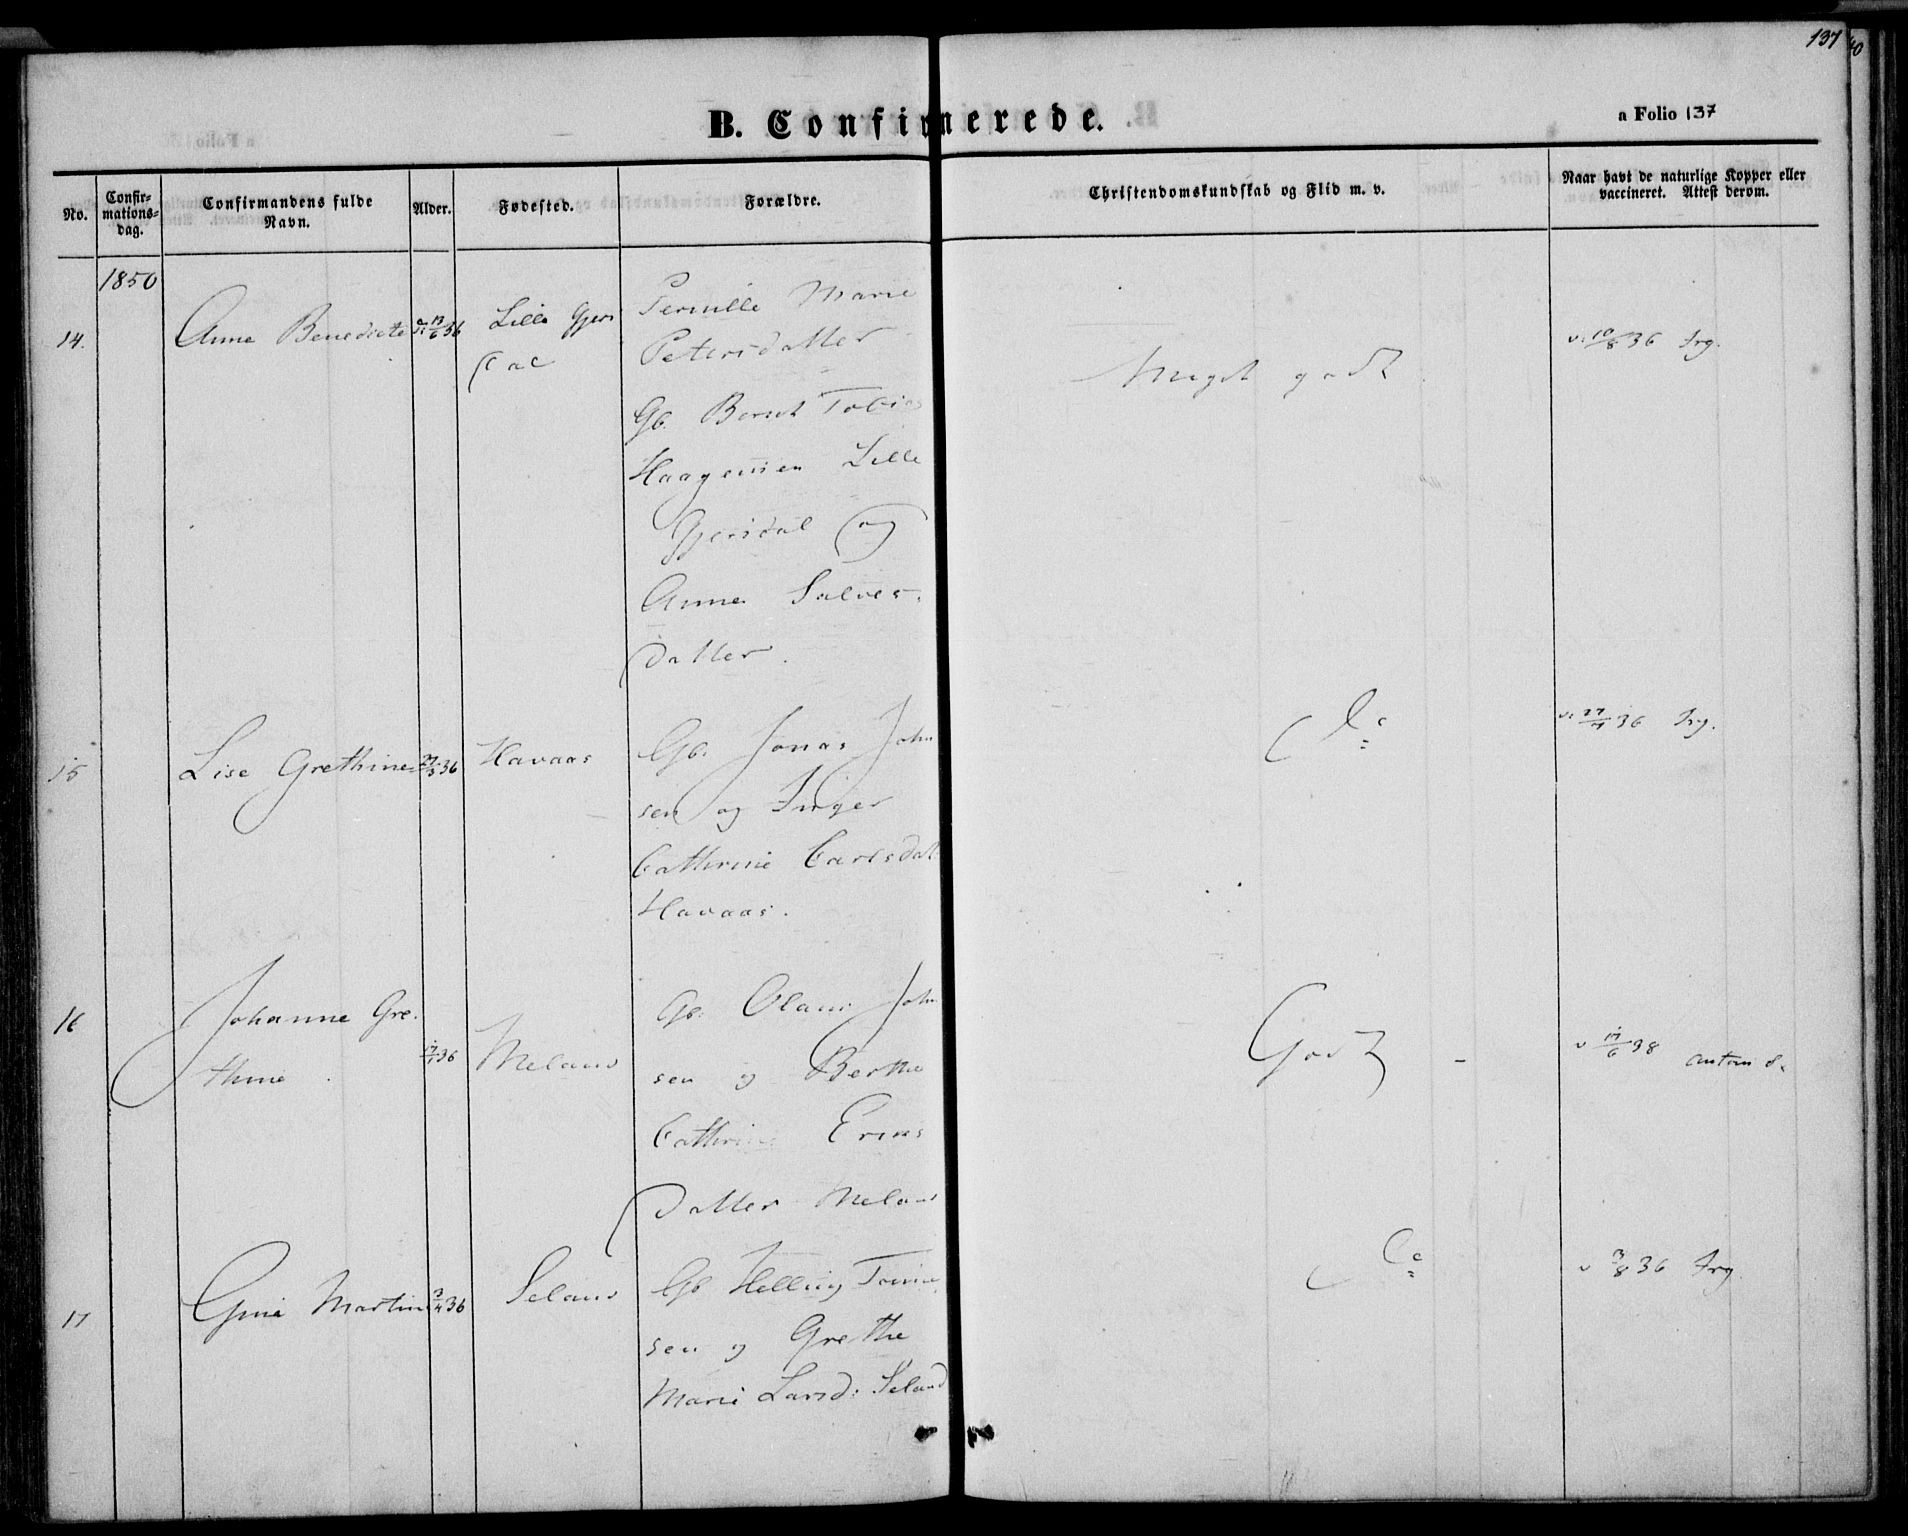 137
B. Confirmerede.
a Folio 137
No.
Confir-
mations-
dag.
Confirmandens fulde
Navn.
Alder.
Fødested.
Forældre.
Christendomskundskab og Flid m. v.
Naar havt de naturlige Kopper eller
vaccineret. Attest derom.
1850
14.
Anne Benedicte
13/6 36
Lille Gjers
dal
Pernille Marie
Petersdatter
Gb. Berent Tobias
Haagensen Lille
Gjersdal og
Anne Salves-
datter.
Meget godt
v. 10/8 36 Frg.
15
Lise Grethine
36
Havaas
Gb. Jonas John
sen og Inger
Cathrine Carlsdat
Havaas.
do
36 Frg.
16
Johanne Gre-
thine
36
Meland
Gb. Olaus John
sen og Berthe
Cathrine
Datter Meland
Godt
v 17/6 38
17
Gine Martine
3/4 36
Seland
Gb Helling
sen og Grethe
Marie Larsd: Seland
do
v 3/8 36 Frg.